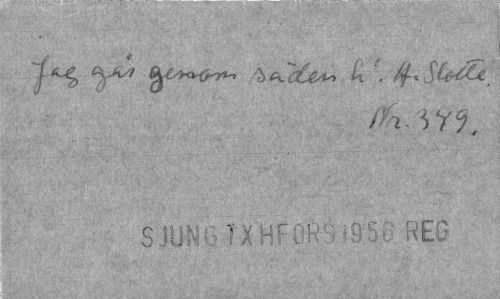 Jag går genom säden h'. H. Slotte.
Nr. 349.
SJUNG 1X HFORS 1956 REG